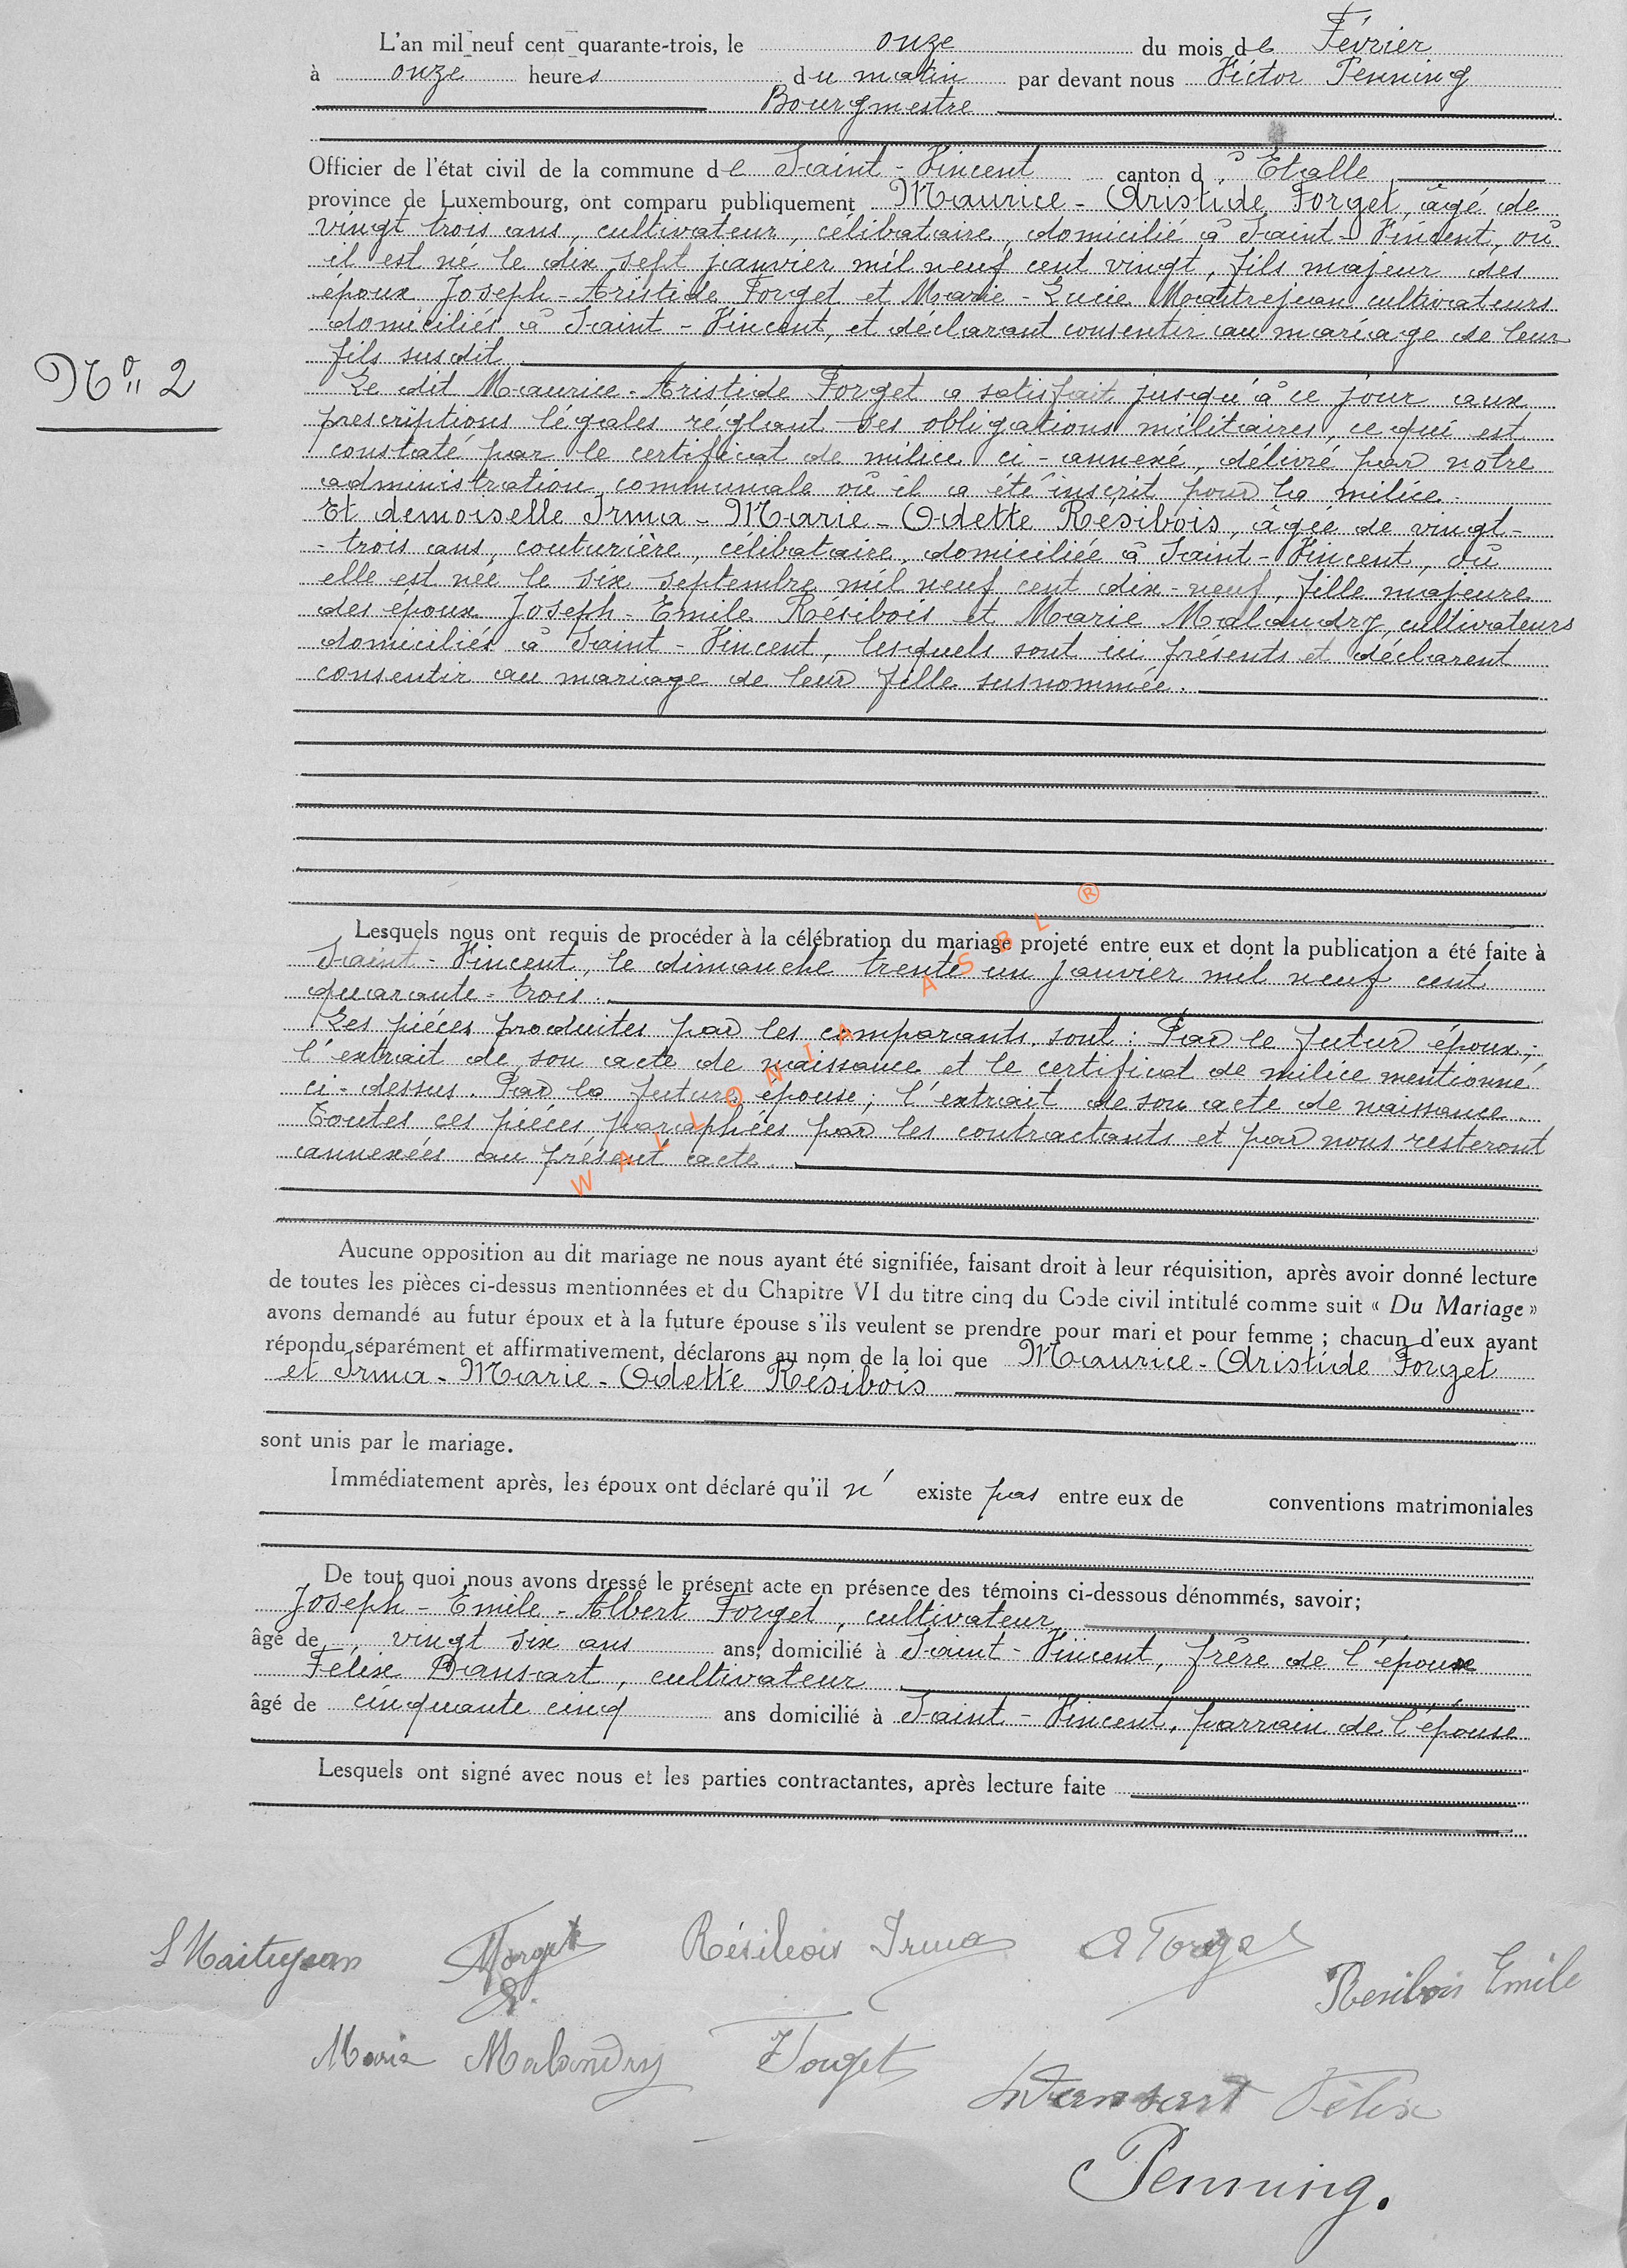 L'an mil neuf cent quarante-trois, le onze du mois de Février
à onze heures du matin par devant nous Victor Penning
Bourgmestre
Officier de l'état civil de la commune de Saint-Vincent canton d'Etalle
province de Luxembourg, ont comparu publiquement Maurice-Aristide Forget, âgé de
vingt trois ans, cultivateur, célibataire, domicilié à Saint-Vincent, où
il est né le dix sept janvier mil neuf cent vingt, fils majeur des
époux Joseph-Aristide Forget et Marie-Lucie Maitrejean cultivateurs
domiciliés à Saint-Vincent, et déclarant consentir au mariage de leur
fils susdit
N° 2
Le dit Maurice-Aristide Forget a satisfait jusqu'à ce jour aux
prescriptions légales réglant ses obligations militaires, ce qui est
constaté par le certificat de milice ci-annexé, délivré par notre
administration communale où il a été inscrit pour la milice.
Et demoiselle Irma-Marie-Odette Résibois, âgée de vingt-
-trois ans, couturière, célibataire, domiciliée à Saint-Vincent, où
elle est née le six septembre mil neuf cent dix-neuf, fille majeure
des époux Joseph-Emile Résibois et Marie Malandry, cultivateurs
domiciliés à Saint-Vincent, lesquels sont ici présents et déclarent
consentir au mariage de leur fille susnommée.
Lesquels nous ont requis de procéder à la célébration du mariage projeté entre eux et dont la publication a été faite à
Saint-Vincent, le dimanche trente un janvier mil neuf cent
quarante-trois.
Les pièces produites par les comparants sont : Par le futur époux;
l'extrait de son acte de naissance et le certificat de milice mentionné
ci-dessus. Par la future épouse; l'extrait de son acte de naissance.
Toutes ces pièces paraphées par les contractants et par nous resteront
annexées au présent acte
WALLONIA ASBL ®
Aucune opposition au dit mariage ne nous ayant été signifiée, faisant droit à leur réquisition, après avoir donné lecture
de toutes les pièces ci-dessus mentionnées et du Chapitre VI du titre cinq du Code civil intitulé comme suit « Du Mariage »
avons demandé au futur époux et à la future épouse s'ils veulent se prendre pour mari et pour femme ; chacun d'eux ayant
répondu séparément et affirmativement, déclarons au nom de la loi que Maurice-Aristide Forget
et Irma-Marie-Odette Résibois
sont unis par le mariage.
Immédiatement après, les époux ont déclaré qu'il n' existe pas entre eux de conventions matrimoniales
De tout quoi nous avons dressé le présent acte en présence des témoins ci-dessous dénommés, savoir;
Joseph-Emile-Albert Forget, cultivateur
âgé de vingt six ans ans, domicilié à Saint-Vincent, frère de l'époux
Félix Dansart, cultivateur
âgé de cinquante cinq ans domicilié à Saint-Vincent, parrain de l'épouse
Lesquels ont signé avec nous et les parties contractantes, après lecture faite
L Maitrejean Forget Résibois Irma A Forget Resibois Emile
Marie Malandry Forget Dansart Félix
Penning.